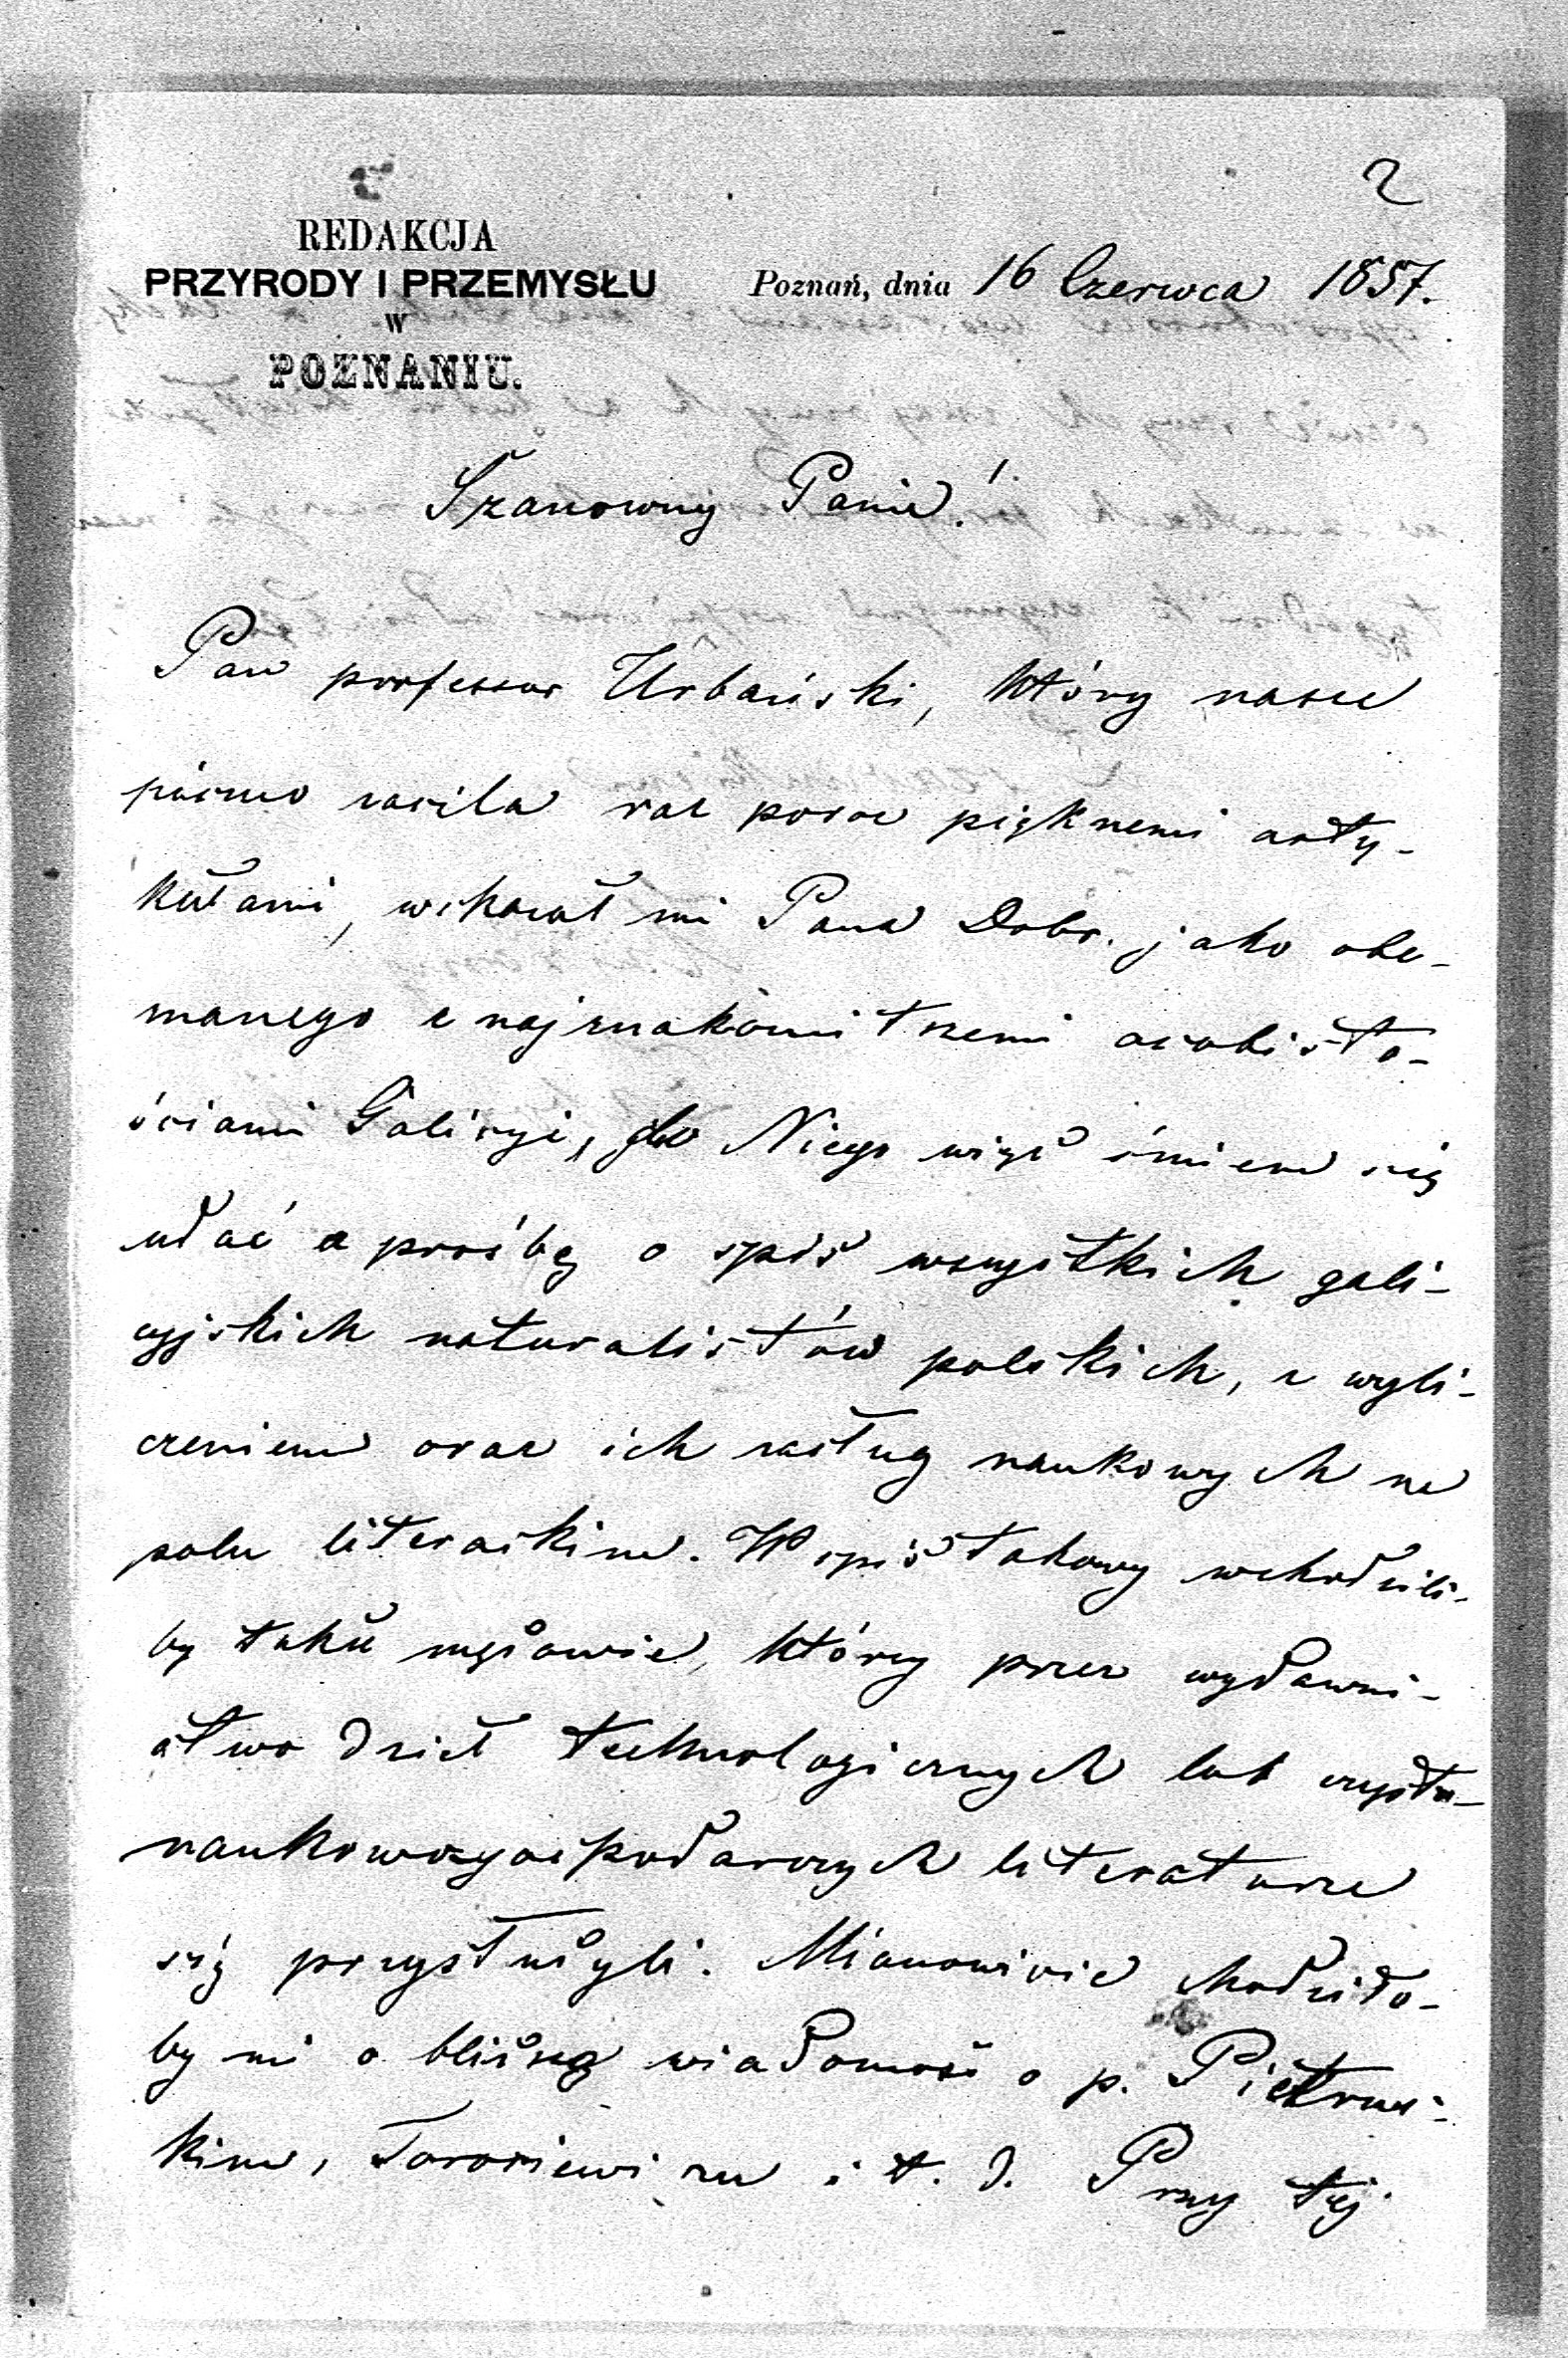 2
REDAKCJA
PRZYRODY I PRZEMYSŁU
W
POZNANIU.
Poznań, dnia 16 Czerwca 1857.
Szanowny Panie!
Pan professor Urbański, który nasze
pismo zasila raz poraz pięknemi arty-
kułami, wskazał mi Pana Dobr. jako obe-
znanego z najznakomitszemi osobisto-
ściami Galicyi, do Niego więc śmiem się
udać z prośbą o spis wszystkich gali-
cyjskich naturalistów polskich, z wyli-
czeniem oraz ich zasług naukowych na
polu literackim. W spis takowy wchodzili-
by także mężowie, którzy przez wydawni-
ctwo dzieł technologicznych lub czysto-
naukowogospodarczych literaturze
się przysłużyli. Mianowicie chodziło-
by mi o bliższą wiadomość o p. Pietrus-
kim, Torosiewiczu i t. d. Przy tej